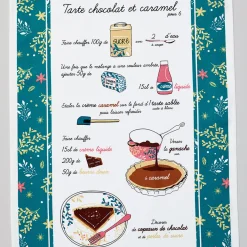 Tarte chocolat et caramel
pour 6
Faire chauffer 100g de
SUCRE
avec 2 d'eau
Une fois que le mélange a une couleur ambrée
ajouter 50g de
15cl de crème liquide
Etaler la crème caramel sur le fond d'tarte sablée
puis laisser refroidir
Faire chauffer
15cl de crème liquide
200g de
50g de beurre
Verser
la ganache
sur
le caramel
Décorer
de copeaux de chocolat